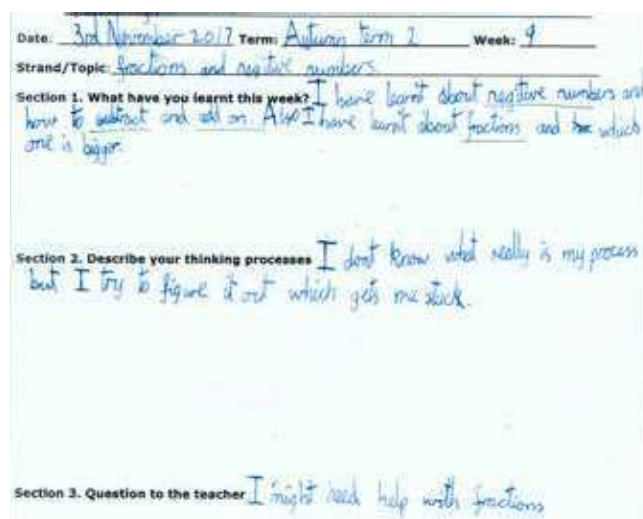 Date: 3rd November 2017 Term: Autumn term 2 Week: 9
Strand/Topic: fractions and negitive numbers
Section 1. What have you learnt this week? I have learnt about negitive numbers and
how to subtract and add on. Also I have learnt about fractions and which
one is bigger.
Section 2. Describe your thinking processes I dont know what really is my process
but I try to figure it out which gets me stuck.
Section 3. Question to the teacher I might need help with fractions